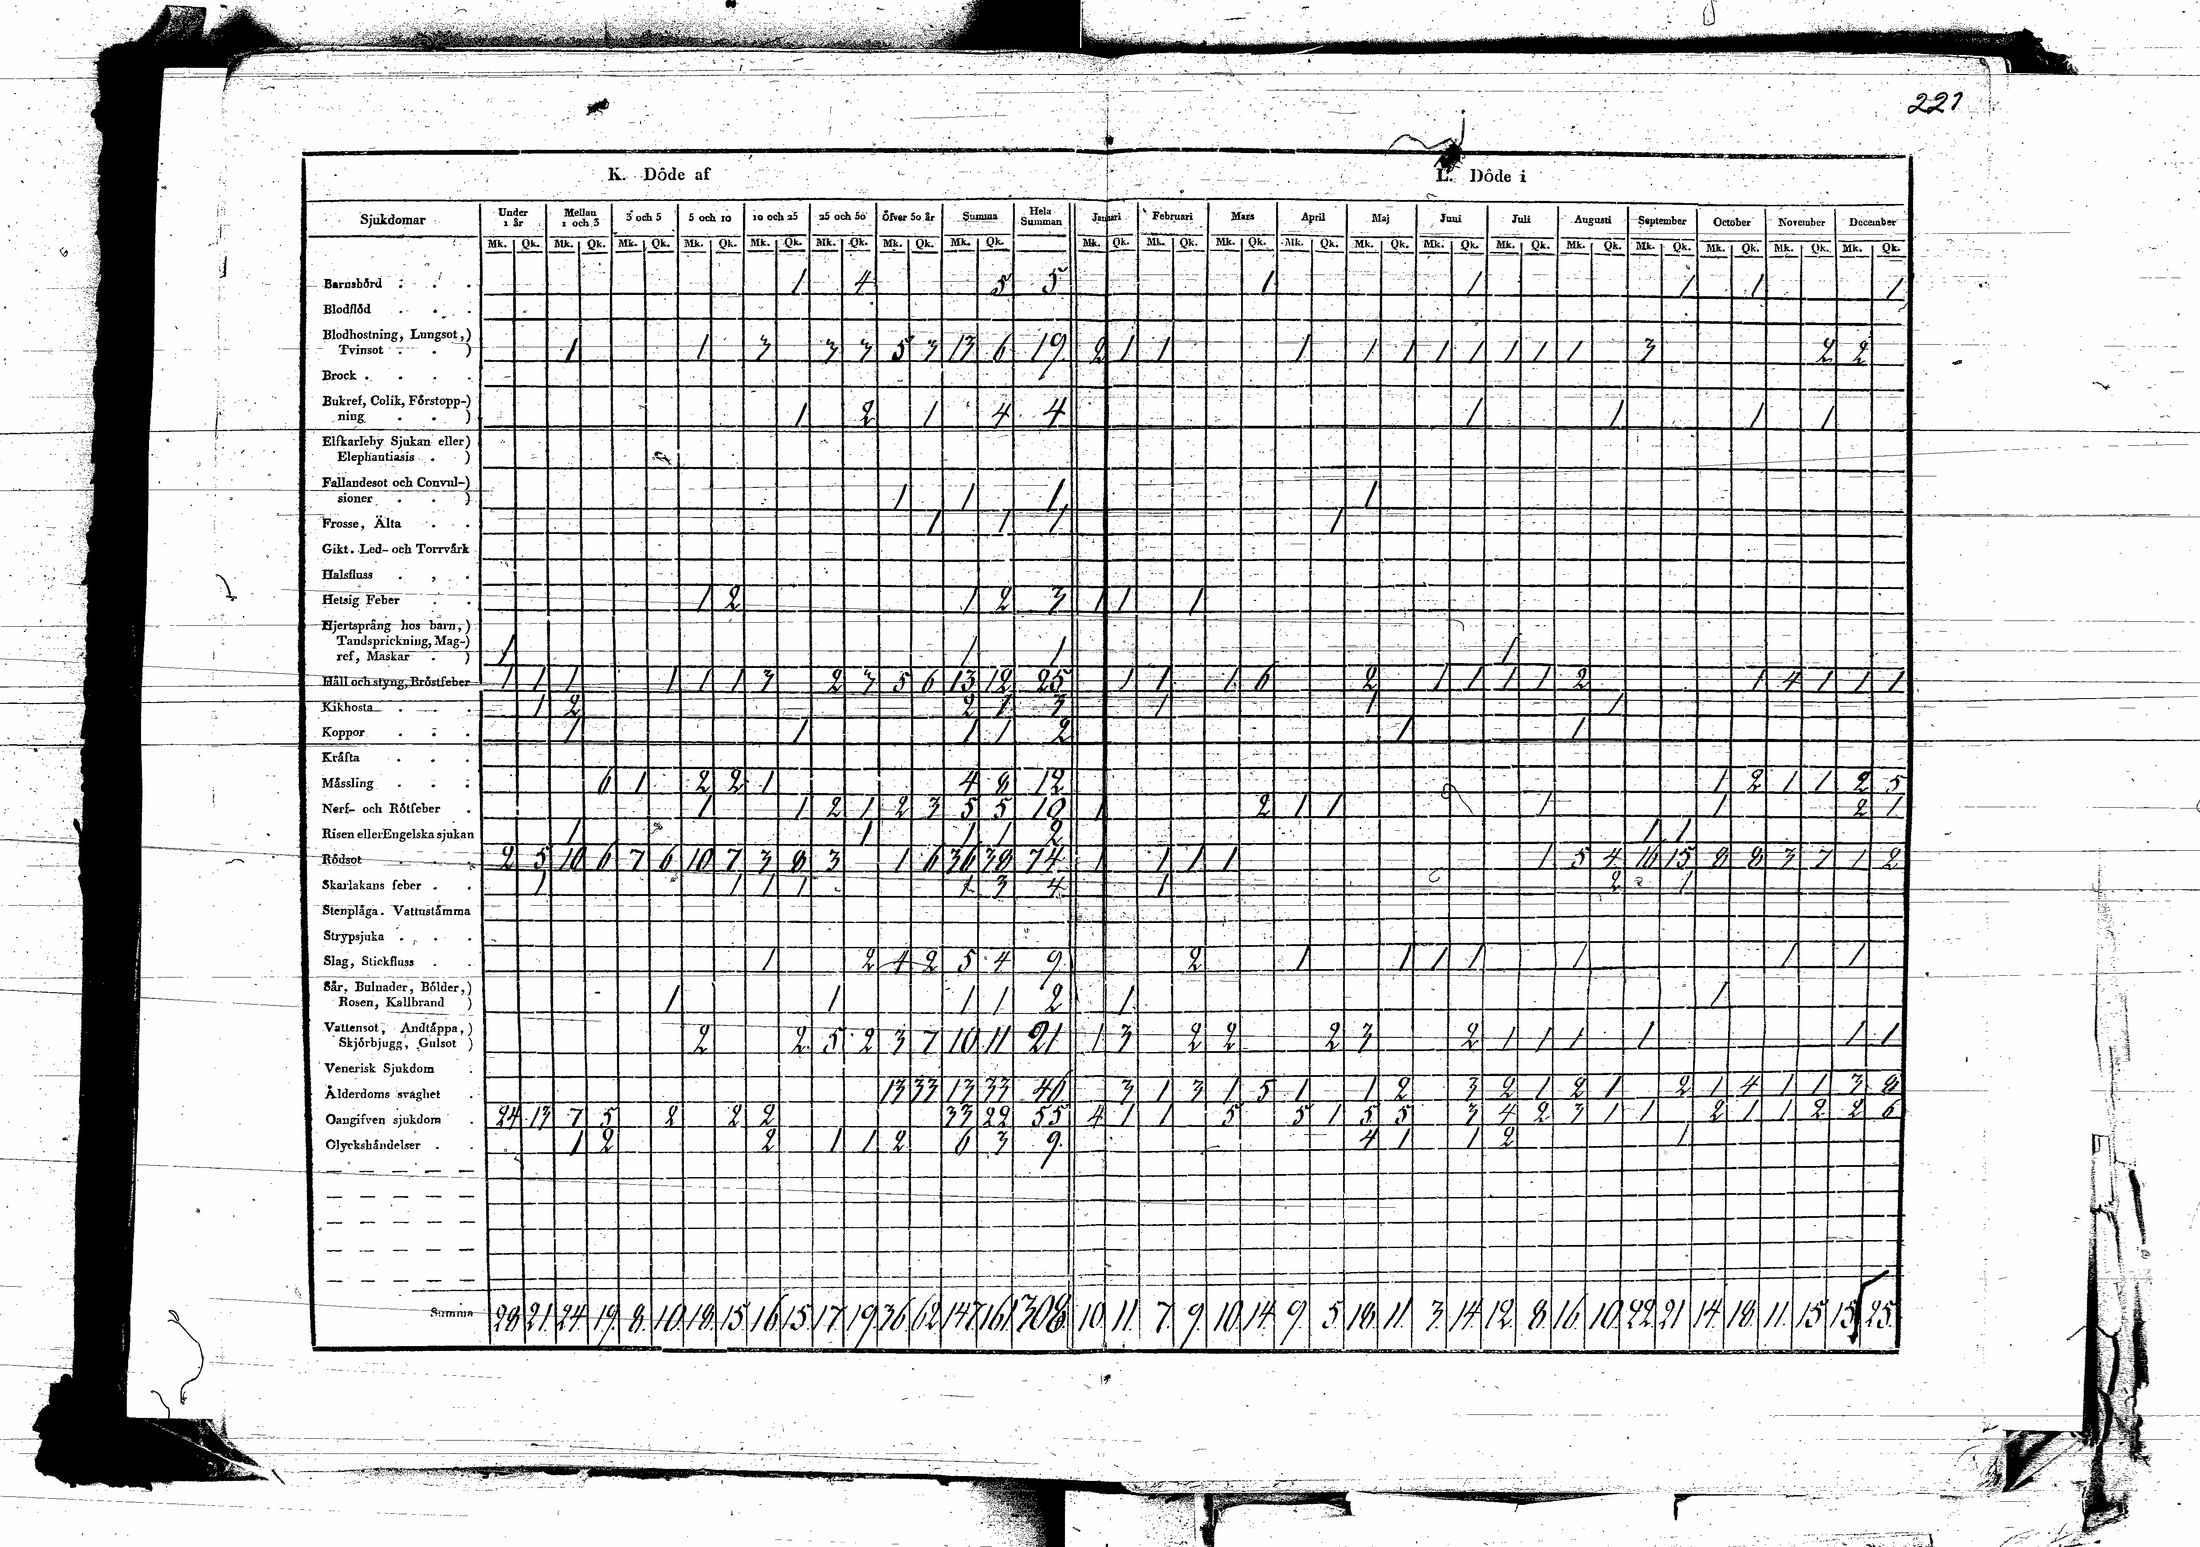 221
K. Döde af L. Döde i
Sjukdomar Under 1 år Mellan 1 och 3 3 och 5 5 och 10 10 och 25 25 och 50 Öfver 50 år Summa Hela Summan Januari Februari Mars April Maj Juni Juli Augusti September October November December
Mk. Qk. Mk. Qk. Mk. Qk. Mk. Qk. Mk. Qk. Mk. Qk. Mk. Qk. Mk. Qk. Mk. Qk. Mk. Qk. Mk. Qk. Mk. Qk. Mk. Qk. Mk. Qk. Mk. Qk. Mk. Qk. Mk. Qk. Mk. Qk. Mk. Qk. Mk. Qk.
Barnsbörd . . . 1 4 5 5 1 1 1 1 1
Blodflöd . . .
Blodhostning, Lungsot,)
Tvinsot . . ) 1 1 3 3 3 5 3 13 6 19 2 1 1 1 1 1 1 1 1 1 1 3 2 2
Brock . . . .
Bukref, Colik, Förstopp-)
ning . . ) 1 2 1 4 4 1 1 1 1
Elfkarleby Sjukan eller)
Elephantiasis . )
Fallandesot och Convul-)
sioner . . ) 1 1 1 1
Frosse, Älta . . 1 1 1 1
Gikt. Led- och Torrvärk
Halsfluss . , .
Hetsig Feber . . 1 2 1 2 3 1 1 1
Hjertsprång hos barn,)
Tandsprickning, Mag-)
ref, Maskar . ) 1 1 1 1
Håll och styng, Bröstfeber 1 1 1 1 1 1 3 2 3 5 6 13 12 25 1 1 1 6 2 1 1 1 1 2 1 4 1 1 1
Kikhosta . . . 1 2 2 1 3 1 1 1
Koppor . . . 1 1 1 1 2 1 1
Kräfta . . .
Mässling . . . 6 1 2 2 1 4 8 12 1 2 1 1 2 5
Nerf- och Rötfeber . 1 1 2 1 2 3 5 5 10 1 2 1 1 1 1 2 1
Risen eller Engelska sjukan 1 1 1 1 2 1 1
Rödsot . . . 2 5 10 6 7 6 10 7 3 8 3 1 6 36 38 74 1 1 1 1 1 5 4 16 15 8 8 3 7 1 2
Skarlakans feber . . 1 1 1 1 1 3 4 1 2 1
Stenplåga. Vattustämma
Strypsjuka . . .
Slag, Stickfluss . . 1 2 4 2 5 4 9 2 1 1 1 1 1 1 1
Sår, Bulnader, Bölder,)
Rosen, Kallbrand ) 1 1 1 1 2 1 1
Vattensot, Andtäppa,)
Skjörbjugg, Gulsot ) 2 2 5 2 3 7 10 11 21 1 3 2 2 2 3 2 1 1 1 1 1 1
Venerisk Sjukdom .
Ålderdoms svaghet . 13 33 13 33 46 3 1 3 1 5 1 1 2 3 2 1 2 1 2 1 4 1 1 3 8
Oangifven sjukdom . 24 13 7 5 2 2 2 33 22 55 4 1 1 5 5 1 5 5 3 4 2 3 1 1 2 1 1 2 2 6
Olyckshändelser . . 1 2 2 1 1 2 6 3 9 4 1 1 2 1
Summa 28 21 24 19 8 10 18 15 16 15 17 19 36 62 147 161 308 10 11 7 9 10 14 9 5 18 11 3 14 12 8 16 10 22 21 14 18 11 15 15 25